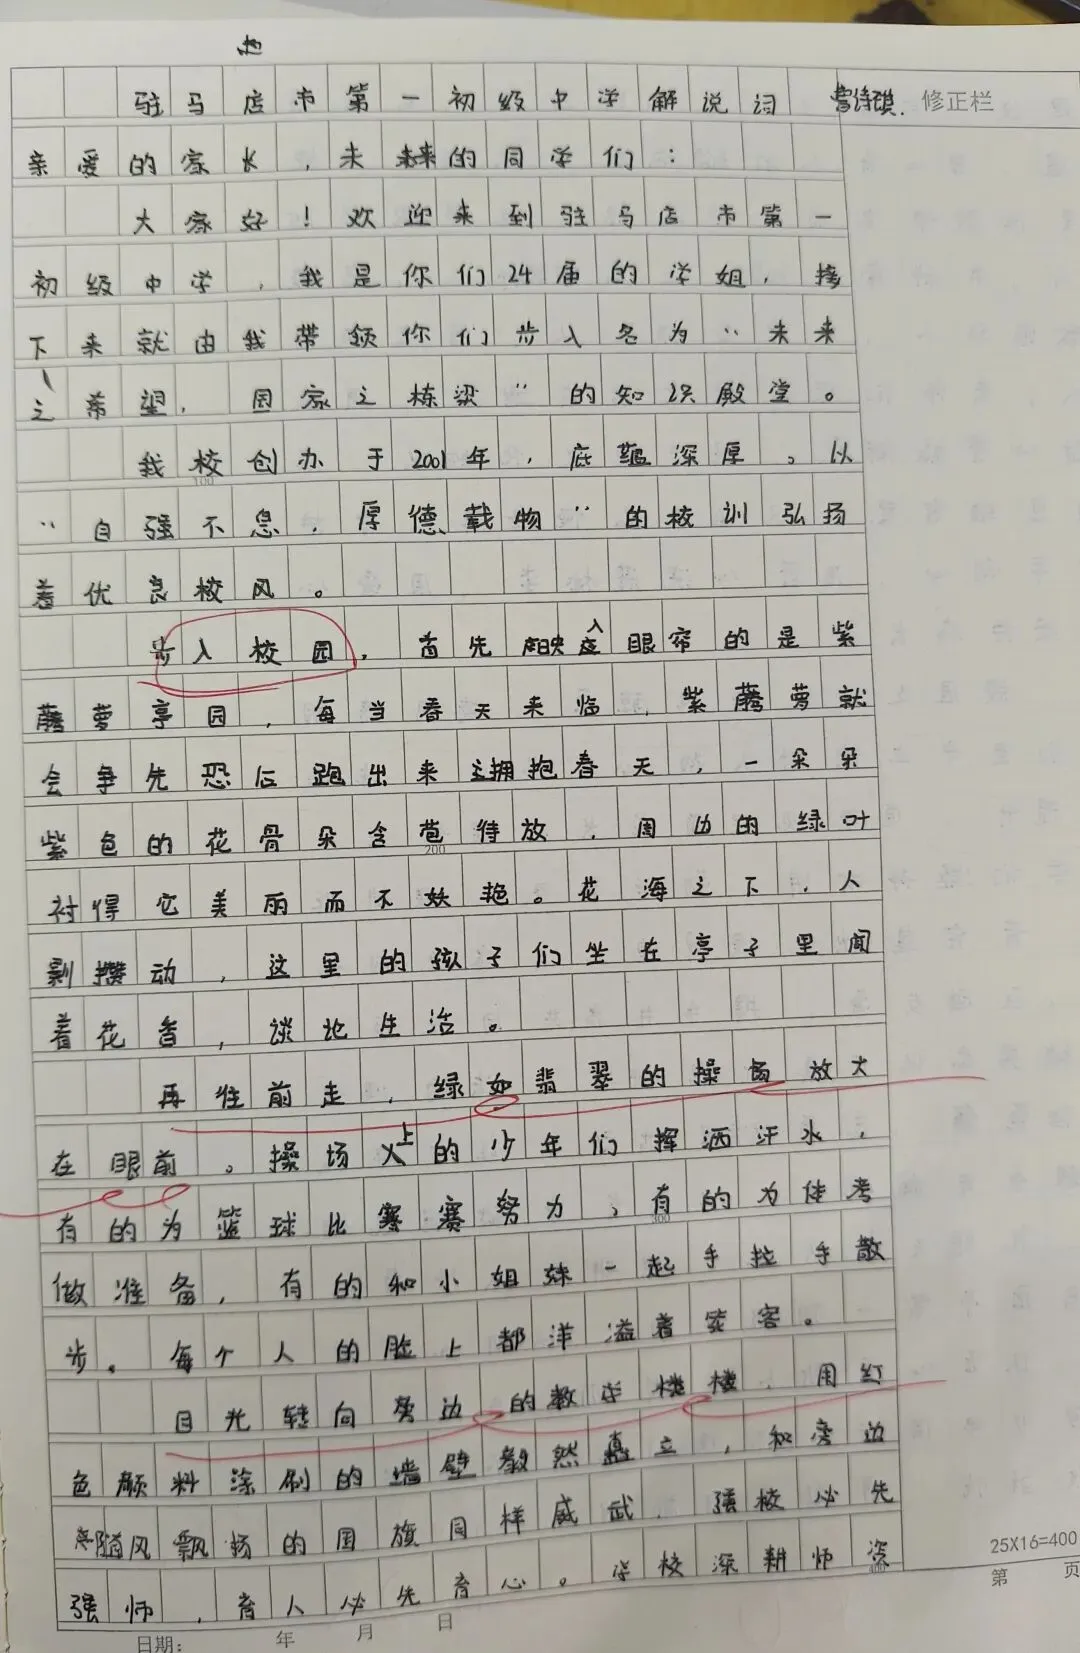 驻马店市第一初级中学解说词
修正栏
亲爱的家长，未来的同学们：
大家好！欢迎来到驻马店市第一
初级中学，我是你们24届的学姐，接
下来就由我带领你们步入名为“未来
之希望，国家之栋梁”的知识殿堂。
我校创办于2001年，底蕴深厚。以
“自强不息，厚德载物”的校训弘扬
着优良校风。
100
步入校园，首先映入眼帘的是紫
藤萝亭园，每当春天来临，紫藤萝就
会争先恐后跑出来拥抱春天，一朵朵
紫色的花骨朵含苞待放，周边的绿叶
200
衬得它美丽而不妖艳。花海之下，人
影攒动，这里的孩子们坐在亭子里闻
着花香，谈论生活。
再往前走，绿如翡翠的操场放大
在眼前。操场上的少年们挥洒汗水，
有的为篮球比赛努力，有的为体考
300
做准备，有的和小姐妹一起手拉手散
步。每个人的脸上都洋溢着笑容。
目光转向旁边的教学楼，用红
色颜料涂刷的墙壁毅然矗立，和旁边
随风飘扬的国旗同样威武，强校必先
强师，育人必先育心。学校深耕师资
400
25X16=400
第 页
日期： 年 月 日